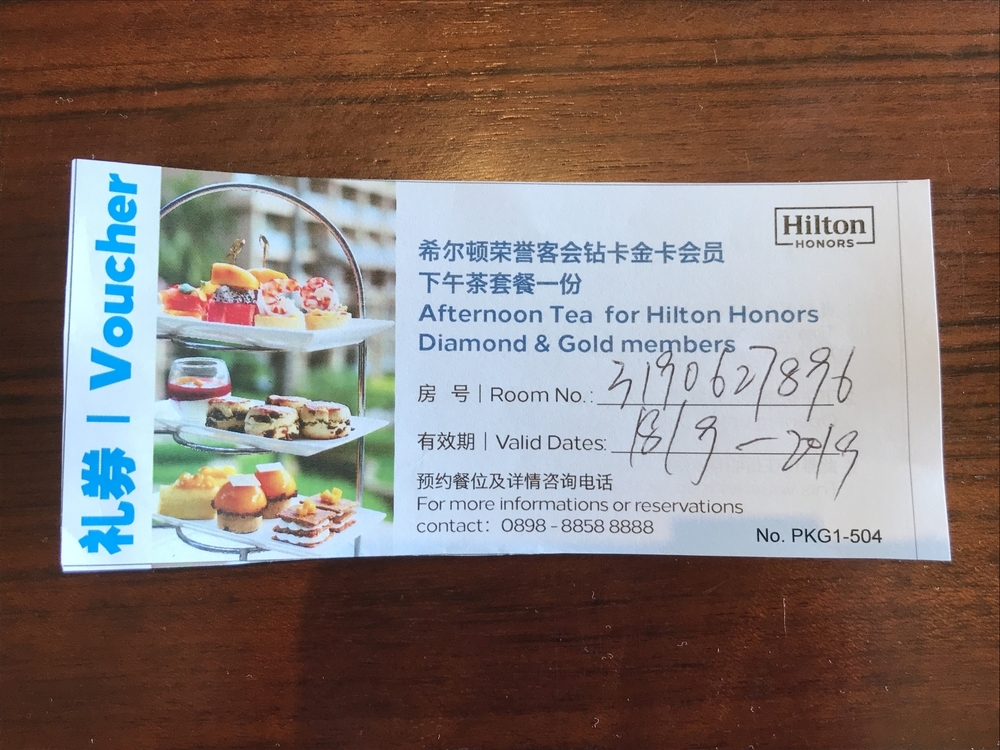 礼券 | Voucher
Hilton
HONORS
希尔顿荣誉客会钻卡金卡会员
下午茶套餐一份
Afternoon Tea for Hilton Honors
Diamond & Gold members
房 号 | Room No.: 3190627896
有效期 | Valid Dates: 18/9 - 20/9
预约餐位及详情咨询电话
For more informations or reservations
contact: 0898 - 8858 8888
No. PKG1-504